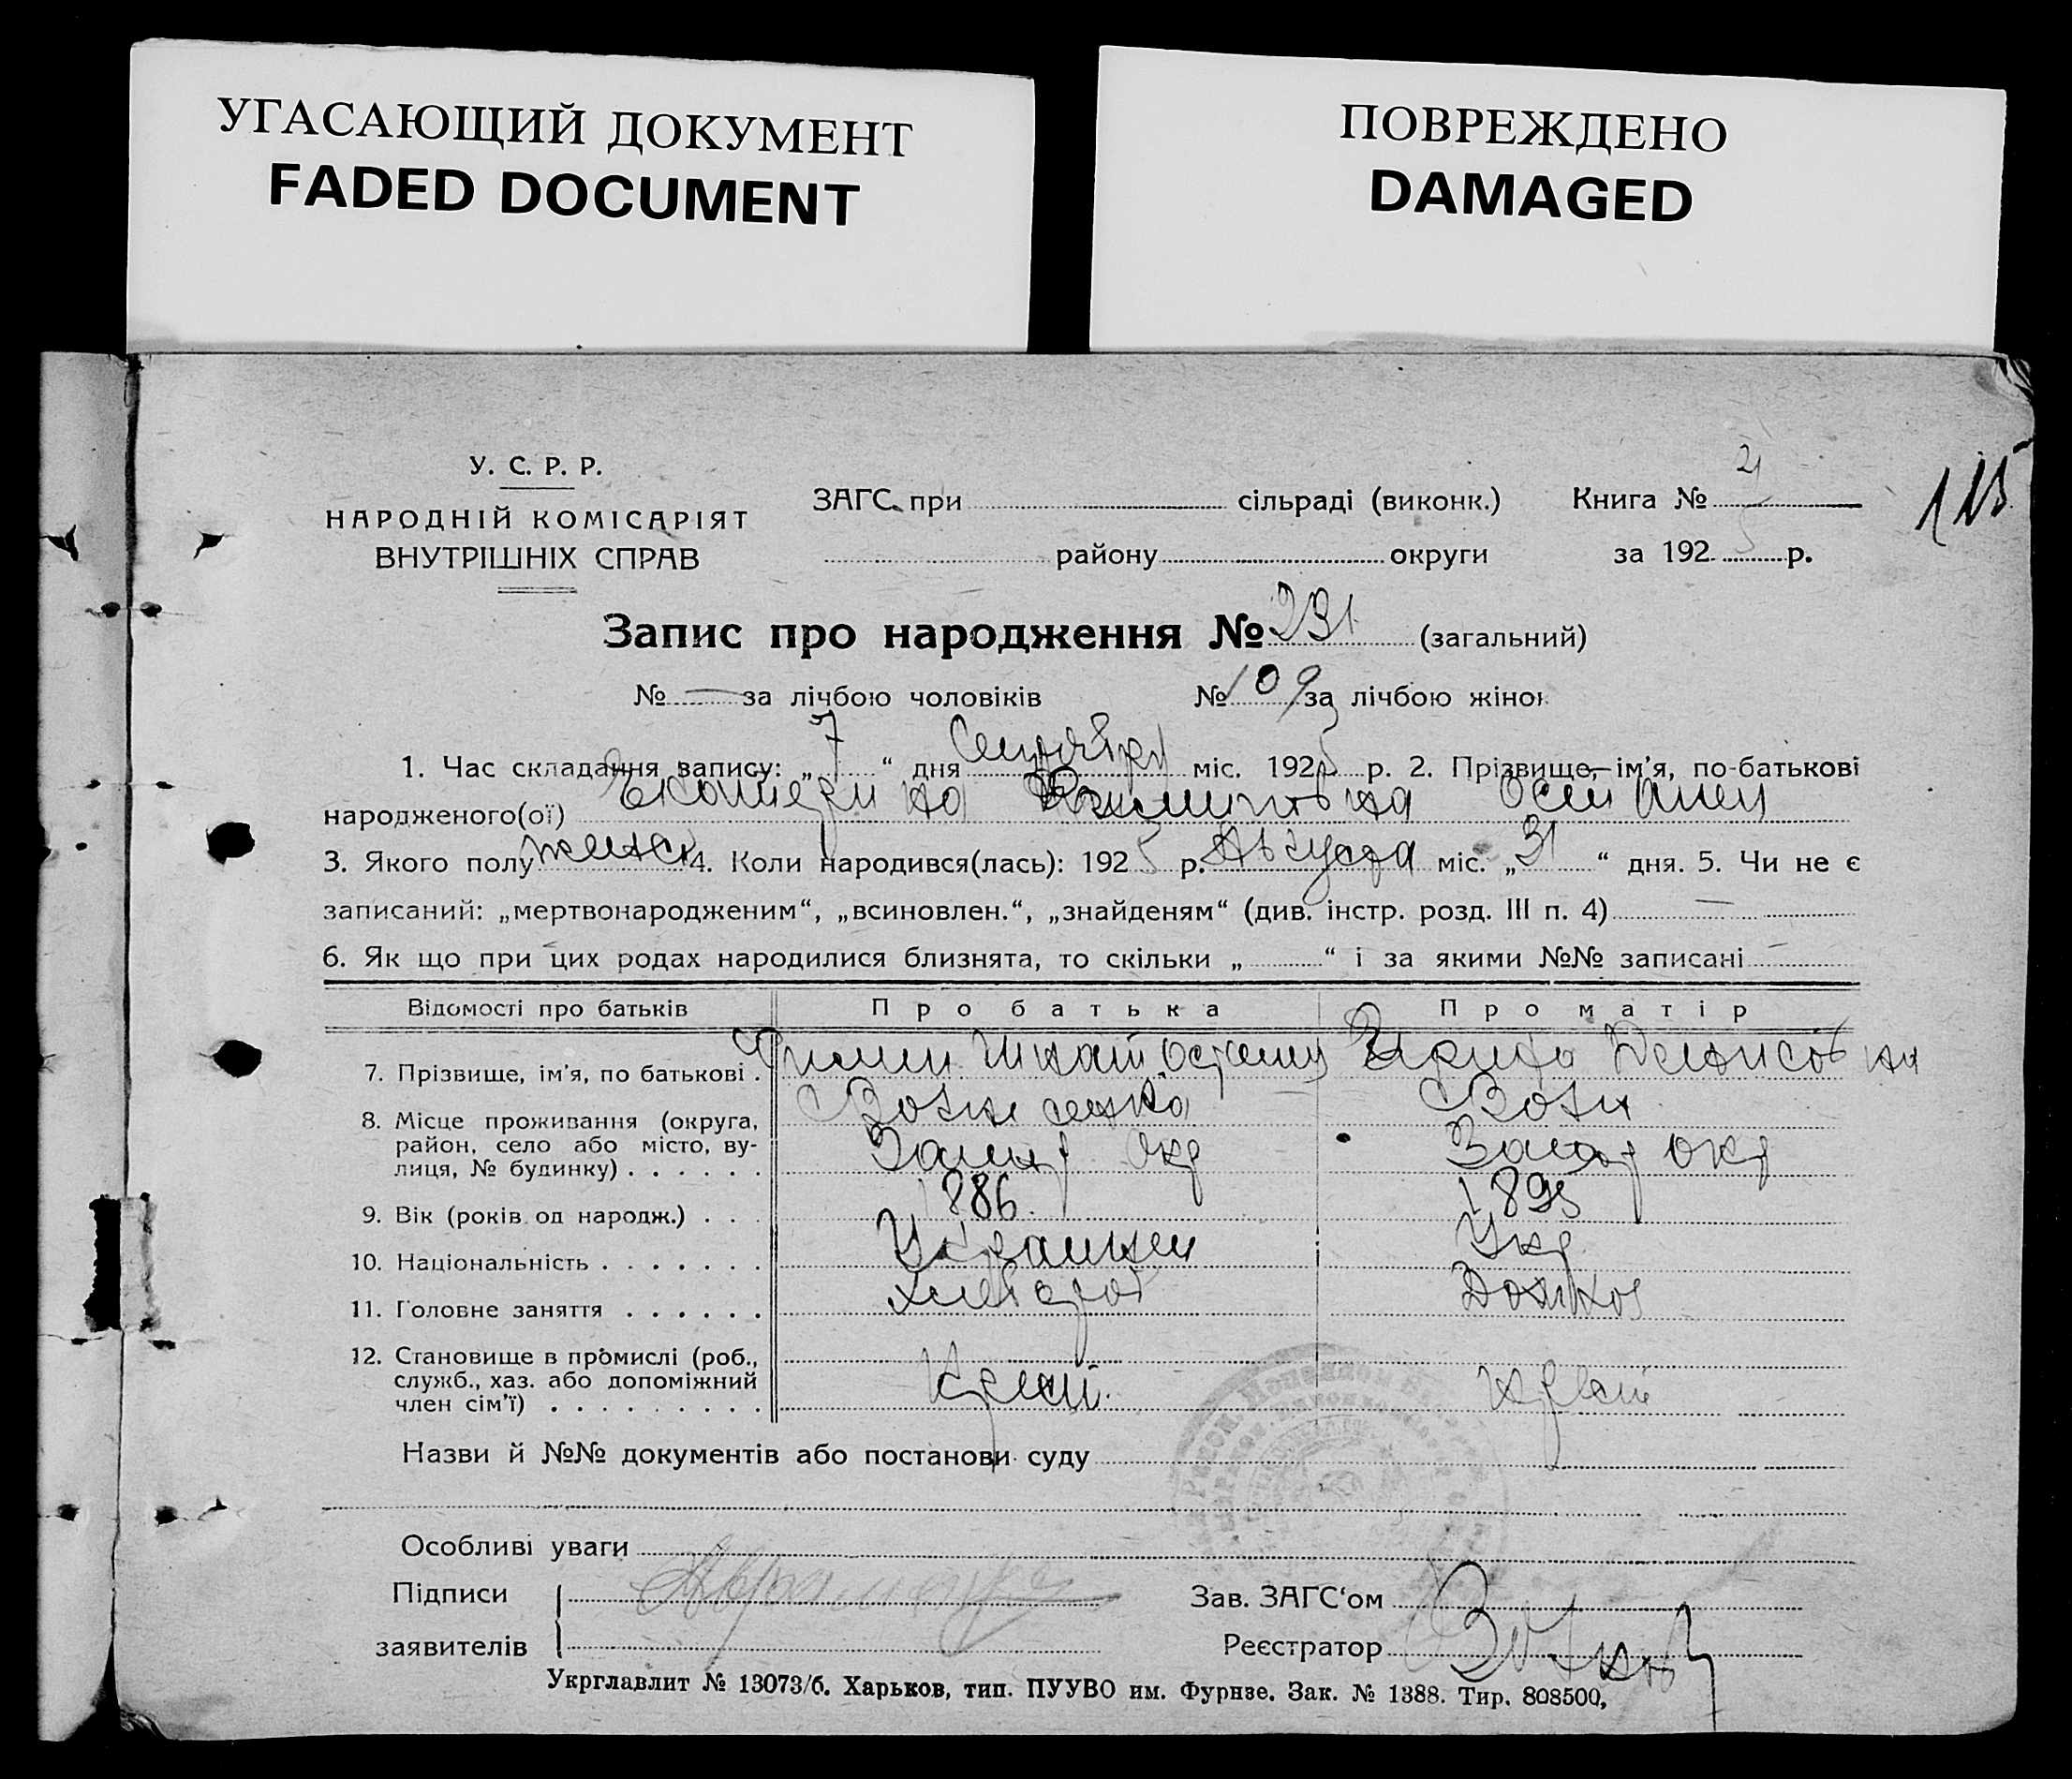 УГАСАЮЩИЙ ДОКУМЕНТ
FADED DOCUMENT
ПОВРЕЖДЕНО
DAMAGED
115
У. С. Р. Р.
НАРОДНІЙ КОМІСАРІЯТ
ВНУТРІШНІХ СПРАВ
ЗАГС при сільраді (виконк.) Книга № 2
району округи за 1925 р.
Запис про народження № 231 (загальний)
№ — за лічбою чоловіків № 109 за лічбою жінок
1. Час складання запису: „7“ дня Сентября міс. 1925 р. 2. Прізвище, ім’я, по-батькові
народженого(ої) Екатерина
3. Якого полу женск 4. Коли народився(лась): 1925 р. Августа міс. „31“ дня. 5. Чи не є
записаний: „мертвонародженим“, „всиновлен.“, „знайденям“ (див. інстр. розд. III п. 4) —
6. Як що при цих родах народилися близнята, то скільки „ “ і за якими №№ записані —
Відомості про батьків Про батька Про матір
7. Прізвище, ім’я, по батькові . Денисовна
8. Місце проживання (округа, Вознесенка Возн
район, село або місто, ву- Запор окр Запор окр
лиця, № будинку) . . . . . .
9. Вік (років од народж.) . . . 1886 1895
10. Національність . . . . . . . Украинец Укр
11. Головне заняття . . . . . . Хлебороб Домхоз
12. Становище в промислі (роб.,
служб., хаз. або допоміжний Крест. Крест
член сім’ї) . . . . . . . . .
Назви й №№ документів або постанови суду
Особливі уваги
Підписи Зав. ЗАГС‘ом
заявителів Реєстратор
Укрглавлит № 13073/б. Харьков, тип. ПУУВО им. Фрунзе. Зак. № 1388. Тир. 808500,